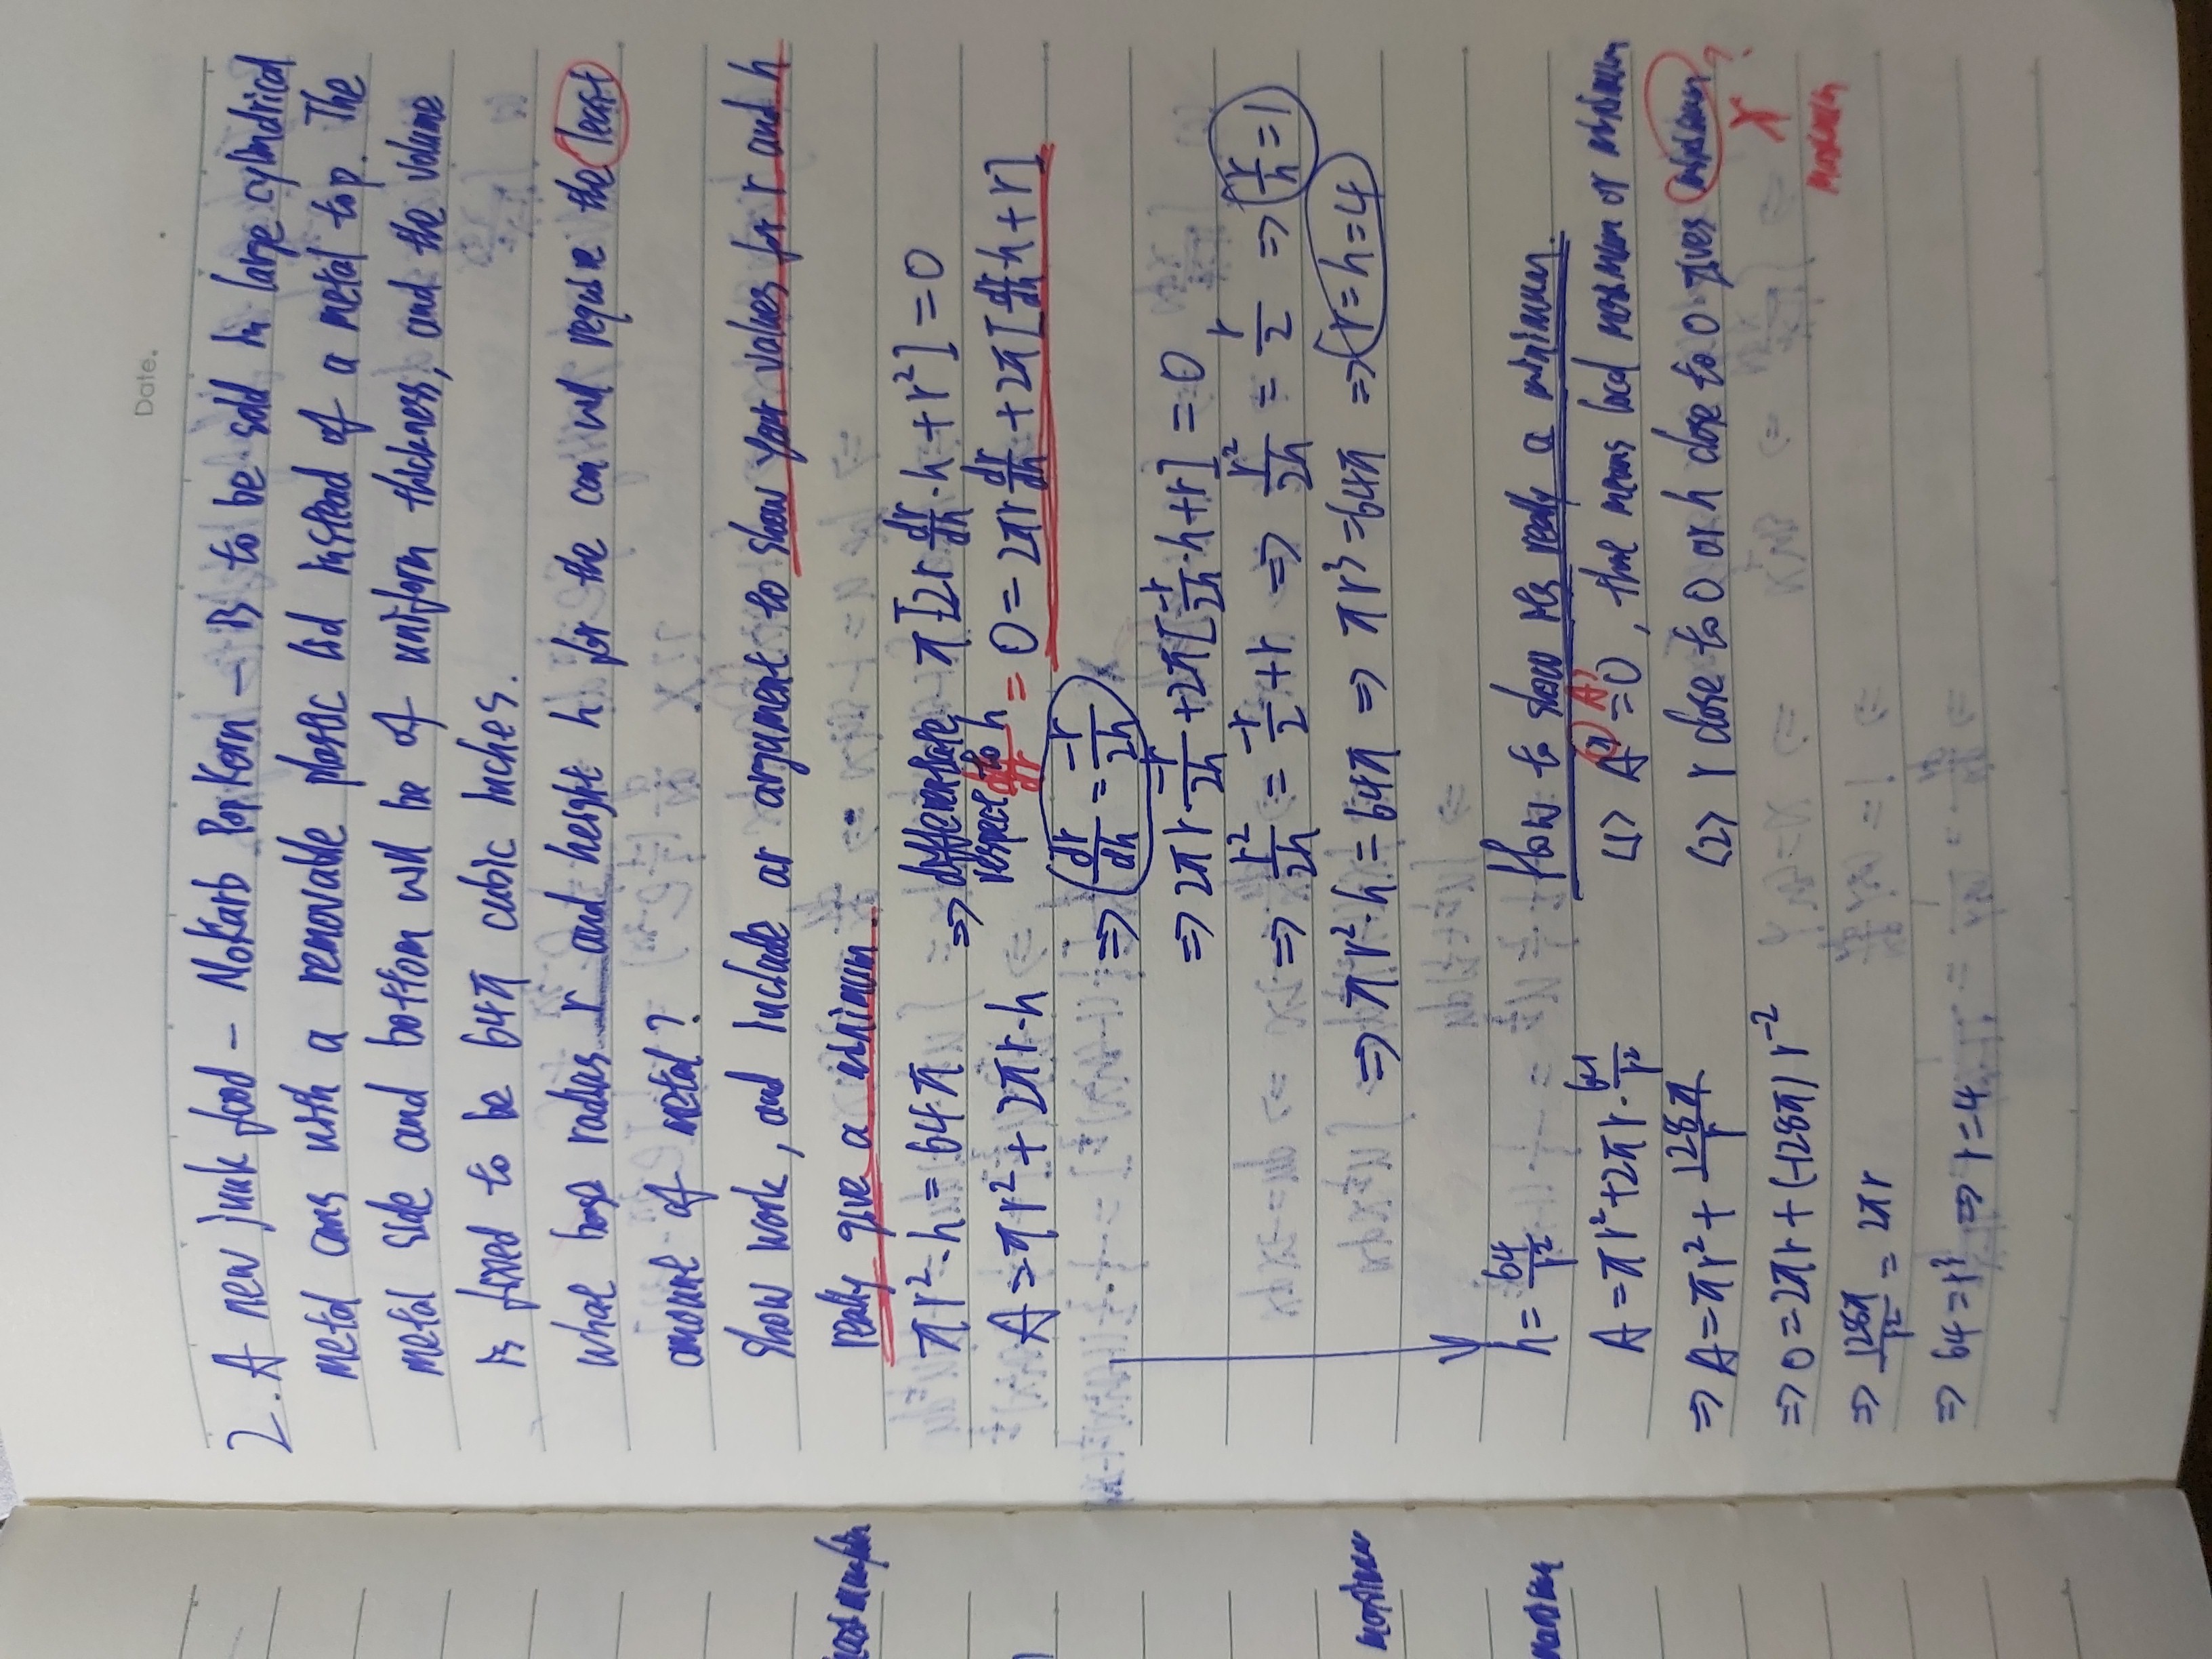 Date.
2. A new junk food – NoKarb PopKorn – is to be sold in large cylindrical
metal cans with a removable plastic lid instead of a metal top. The
metal side and bottom will be of uniform thickness, and the volume
is fixed to be 64π cubic inches.
what base radius r and height h for the can will require the least
amount of metal?
show work, and include an argument to show your values for r and h
really give a minimum.
πr²·h = 64π ⇒ differentiate respect to h π[2r dr/dh·h + r²] = 0
A = πr² + 2πr·h = 0 = 2πr dr/dh + 2π[dr/dh·h + r]
⇒ dr/dh = -r/2h
⇒ 2πr·-r/2h + 2π[-r/2h·h + r] = 0
⇒ r²/2h = -r/2 + r ⇒ r²/2h = r/2 ⇒ r/h = 1
⇒ πr²·h = 64π ⇒ πr³ = 64π ⇒ r = h = 4
maximum
h = 64/r²
How to show it's really a minimum.
A = πr² + 2πr·64/r²
(1) A' = 0, that means local maximum or minimum
A'
⇒ A = πr² + 128π/r
(2) r close to 0 or h close to 0 gives minimum ?
X
maximum
⇒ 0 = 2πr + (-128π) r⁻²
⇒ 128π/r² = 2πr
⇒ 64 = r³ ⇒ r = 4